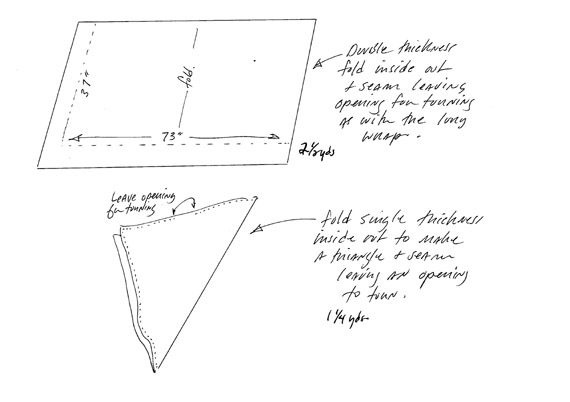 37"
fold.
73"
Double thickness
fold inside out
+ seam leaving
opening for turning
as with the long
wrap.
2 1/2 yds
Leave opening
for turning
fold single thickness
inside out to make
a triangle + seam
leaving an opening
to turn.
1 1/4 yds